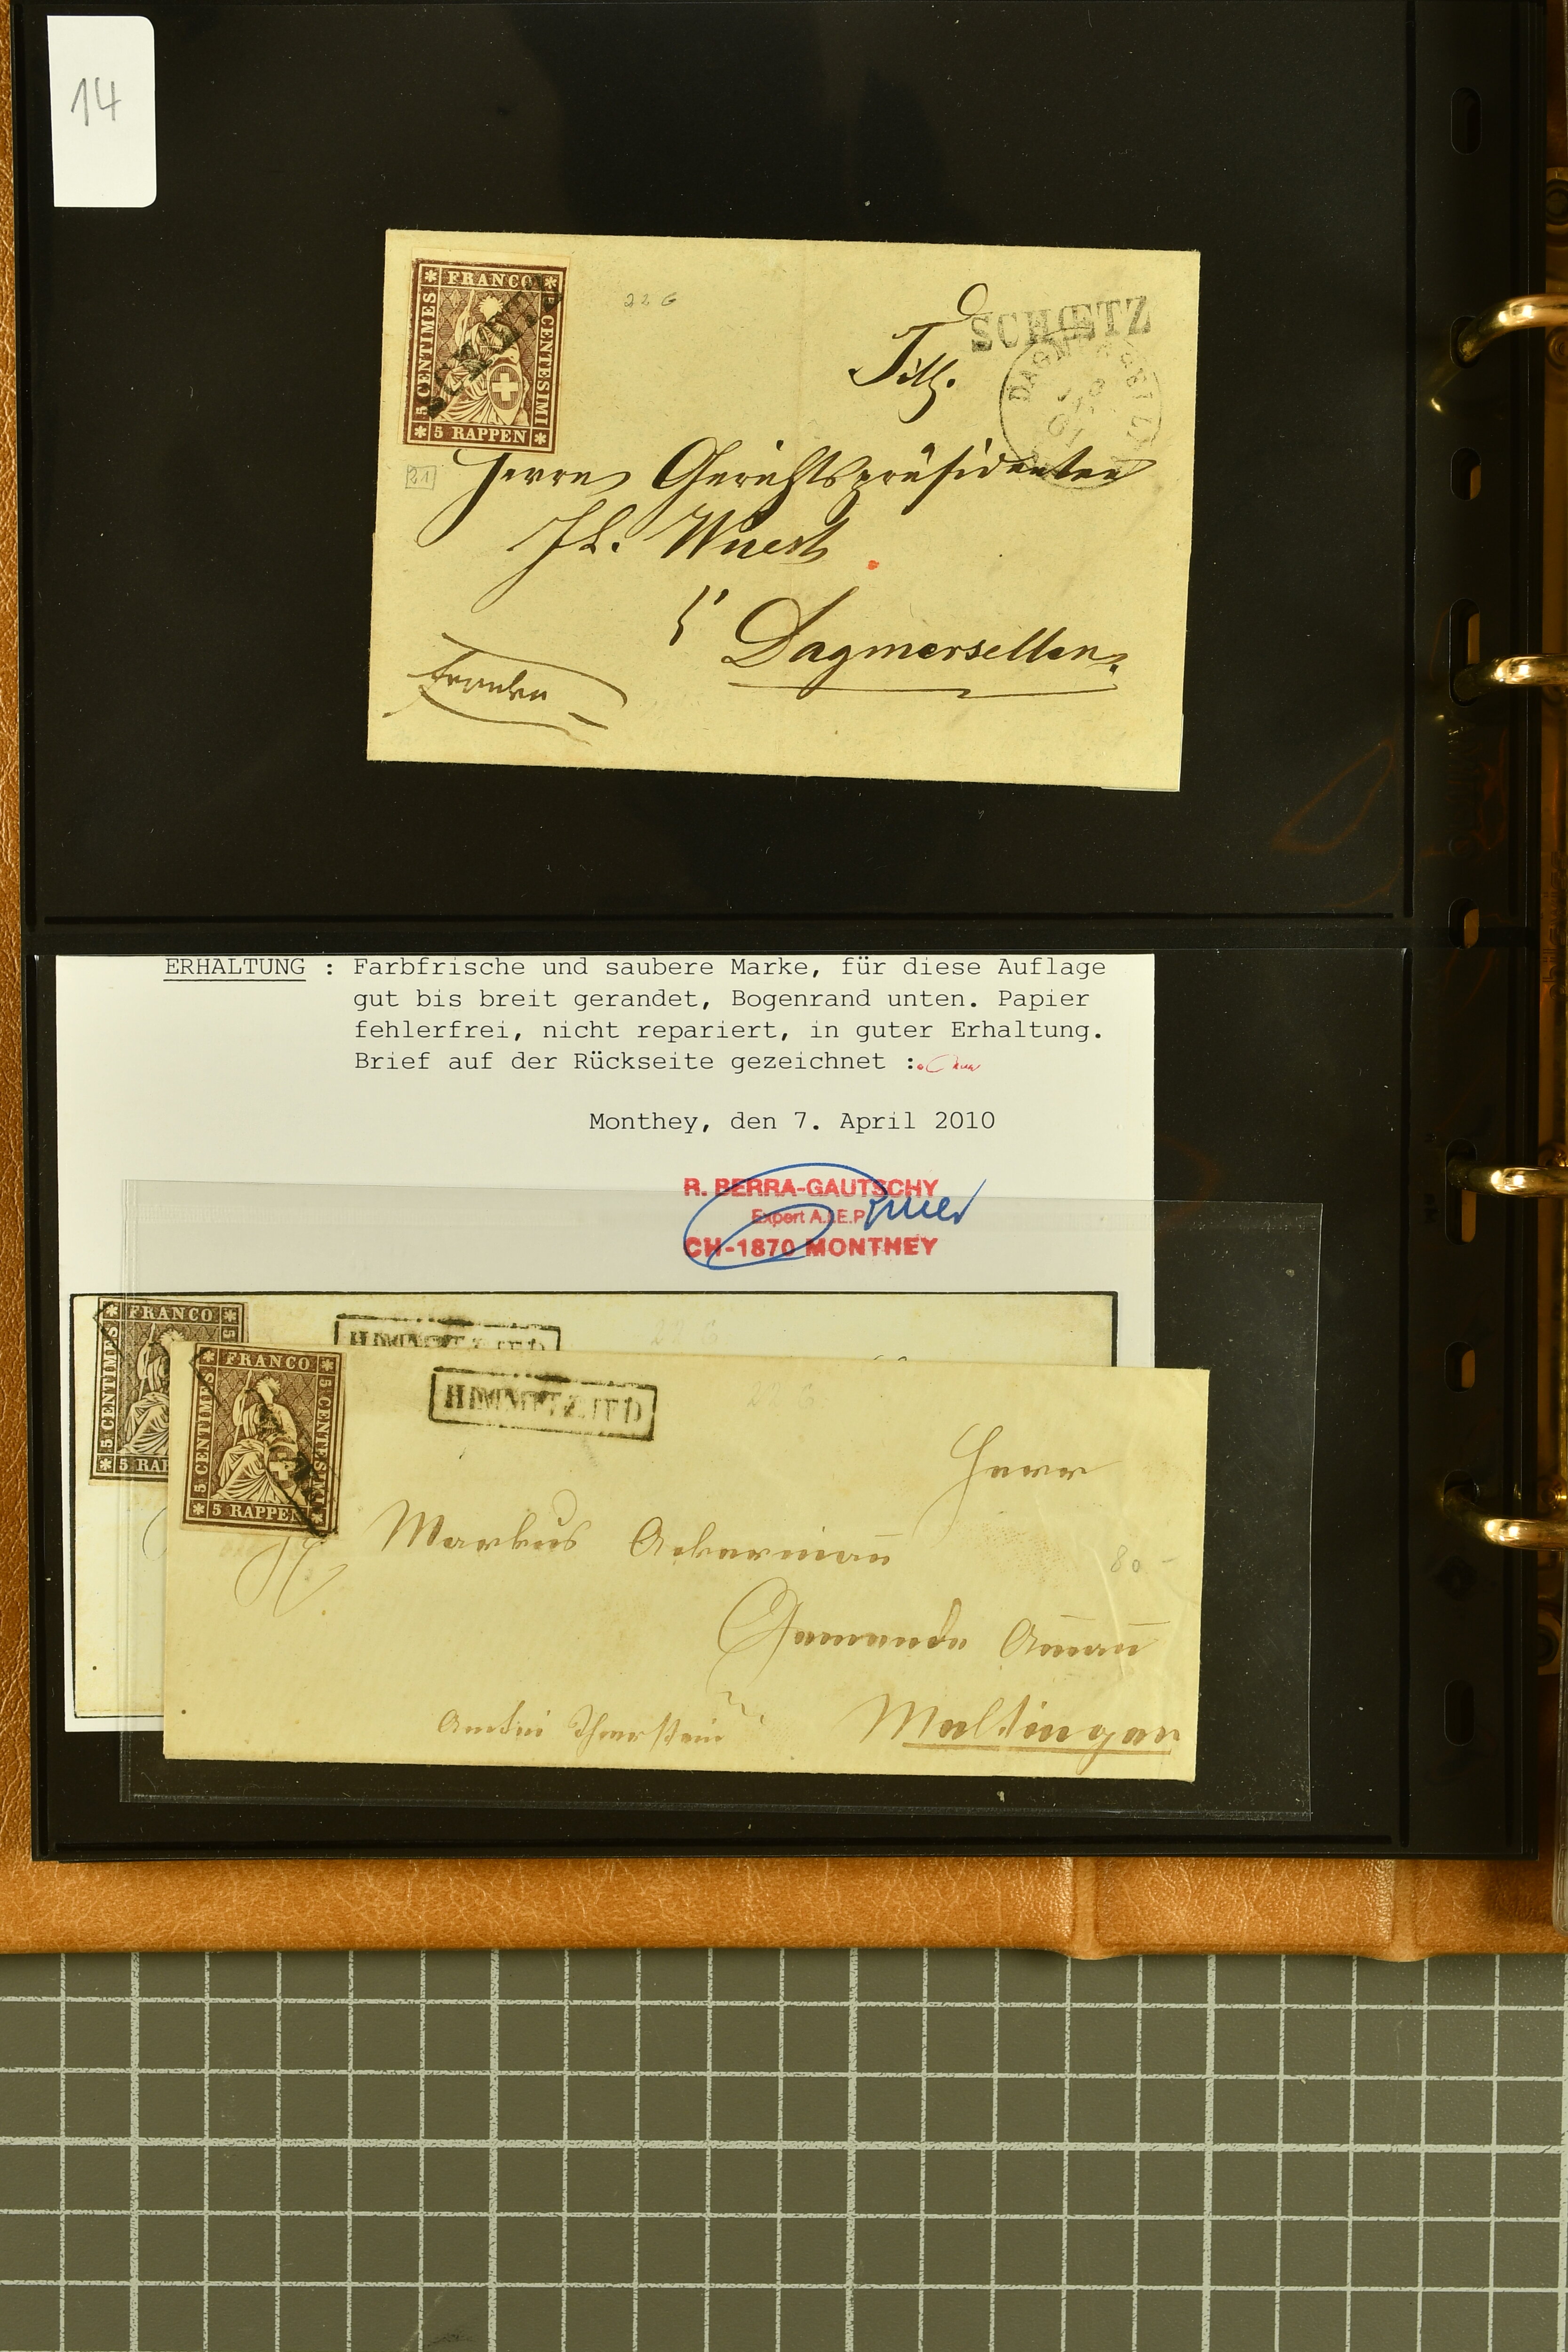 14
FRANCO
5 CENTIMES
5 CENTESIMI
5 RAPPEN
22 G
SCHŒTZ
Titl.
21
Herrn Gerichtspräsidenten
Jb. Wuest
Dagmersellen.
Franko
ERHALTUNG : Farbfrische und saubere Marke, für diese Auflage
gut bis breit gerandet, Bogenrand unten. Papier
fehlerfrei, nicht repariert, in guter Erhaltung.
Brief auf der Rückseite gezeichnet :
Monthey, den 7. April 2010
R. BERRA-GAUTSCHY
Expert A.I.E.P.
CH-1870 MONTHEY
FRANCO
5 CENTIMES
5 RAP
22 G.
FRANCO
5 CENTIMES
5 CENTESIMI
5 RAPPEN
HIMMELRIED
22 G.
Herr
Markus Ackermañ
80 -
Gemeinde Amañ
Amtei Thierstein
Meltingen